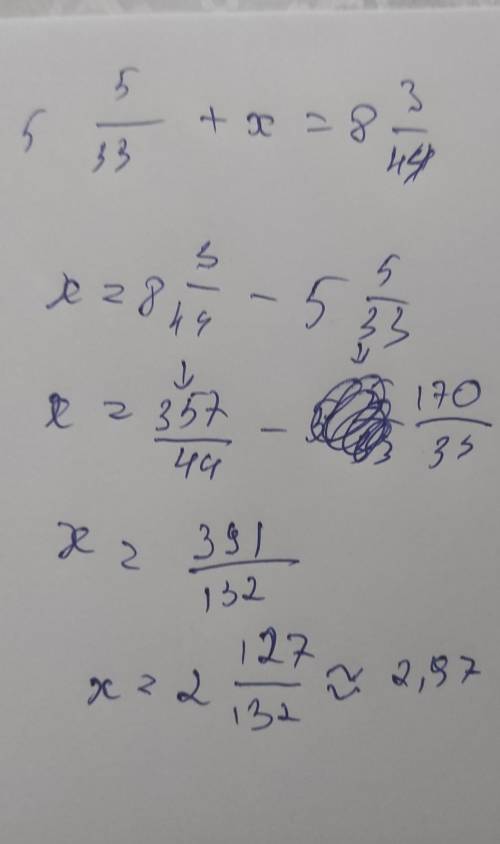 5 5/33 + x = 8 3/44
x = 8 3/44 - 5 5/33
x = 357/44 - 170/33
x = 391/132
x = 2 127/132 ≈ 2,97